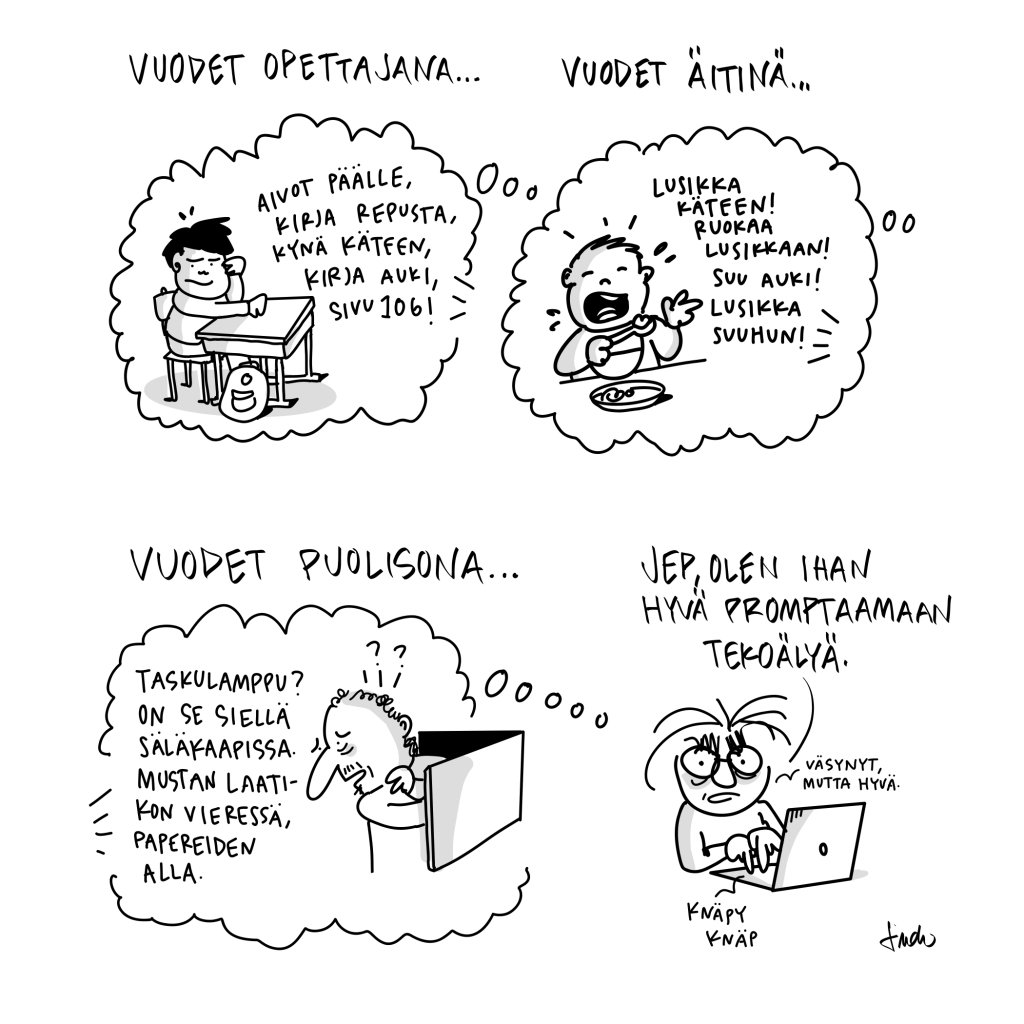 VUODET OPETTAJANA...
AIVOT PÄÄLLE,
KIRJA REPUSTA,
KYNÄ KÄTEEN,
KIRJA AUKI,
SIVU 106!
VUODET ÄITINÄ...
LUSIKKA
KÄTEEN!
RUOKAA
LUSIKKAAN!
SUU AUKI!
LUSIKKA
SUUHUN!
VUODET PUOLISONA...
TASKULAMPPU?
ON SE SIELLÄ
SÄLÄKAAPISSA.
MUSTAN LAATI-
KON VIERESSÄ,
PAPEREIDEN
ALLA.
??
JEP, OLEN IHAN
HYVÄ PROMPTAAMAAN
TEKOÄLYÄ.
VÄSYNYT,
MUTTA HYVÄ.
KNÄPY
KNÄP